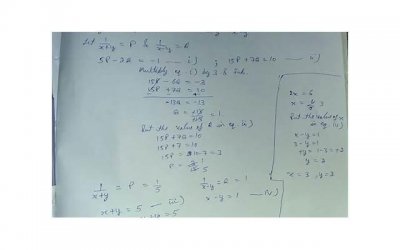 Let 1/x+y = P & 1/x-y = Q
5P - 2Q = -1 — i) ; 15P + 7Q = 10 — ii)
Multiply eq (i) by 3 &
15P - 6Q = -3
15P + 7Q = 10
-13Q = -13
Q = = 1
Put the value of Q in eq ii)
15P + 7Q = 10
15P + 7 = 10
15P = 10 - 7 = 3
P = 1/5
1/x+y = P = 1/5
1/x-y = Q = 1
x+y = 5 — iii)
x-y = 1 — iv)
= 5
2x = 6
x = 3
Put the value of x
in eq iv)
x-y = 1
3-y = 1
y = 2
x = 3, y = 2